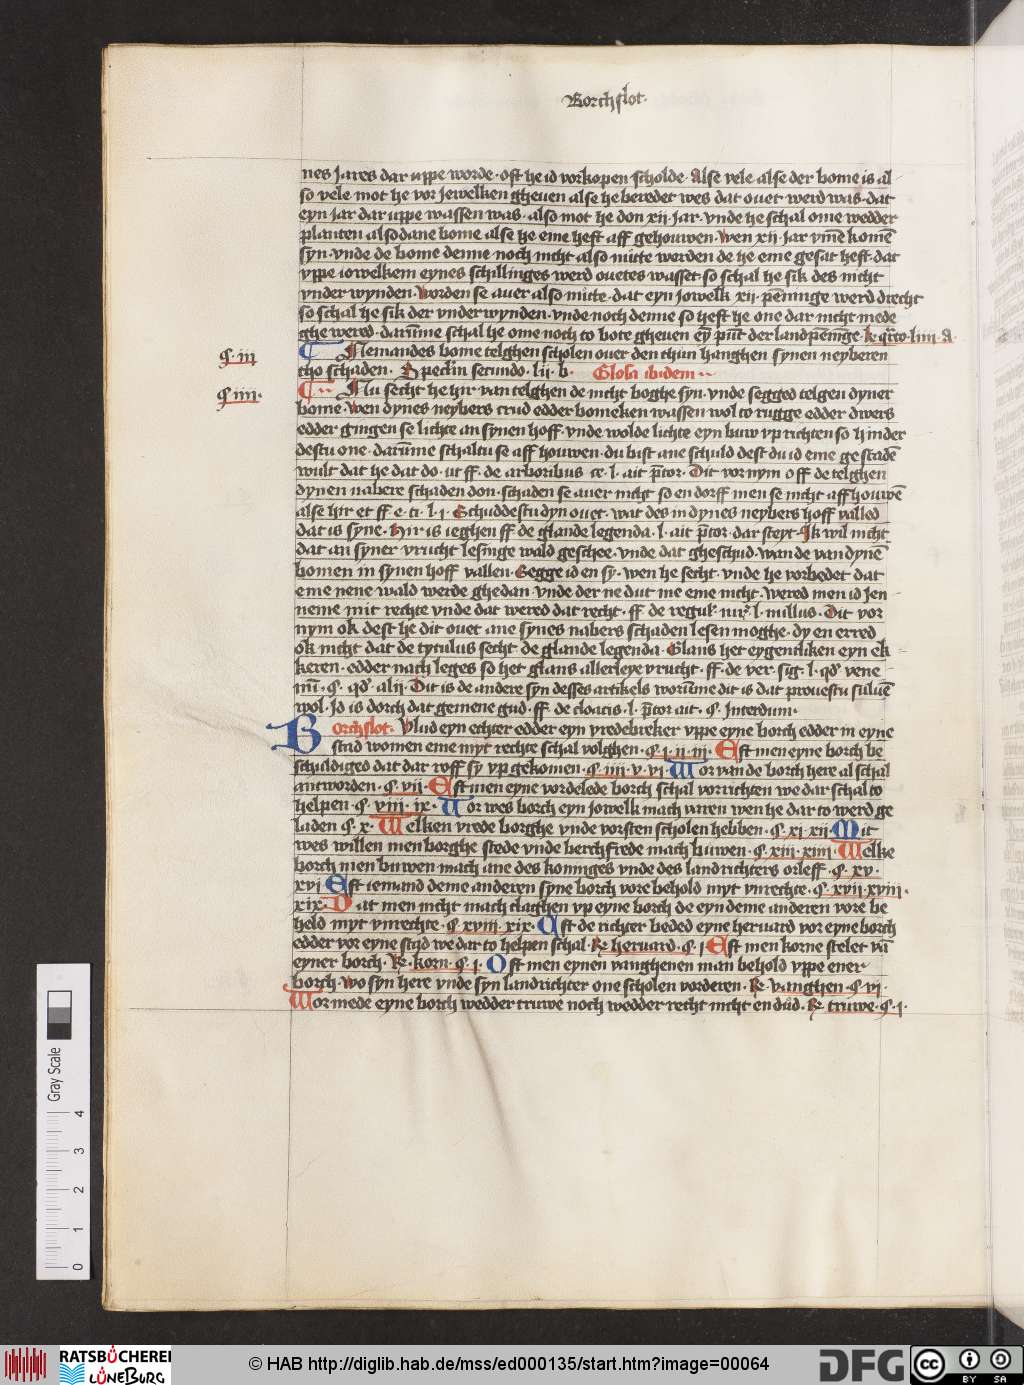 Borchslot.
nes Jares dar uppe worde · oft he id vorkopen scholde · Alse vele alse der bome is al
so vele mot he vor jewelken gheuen alse he beredet wes dat ouet werd was · dat
eyn jar dar uppe wassen was · also mot he don xii · jar · vnde he schal ome wedder
planten alsodane bome alse he eme heft aff gehouwen · Wen xii · jar vm̄e komē
syn · vnde de bome denne noch nicht also nutte worden de he eme gesat heft · dat
vppe iowelkem eynes schillinges werd ouetes wasset so schal he sik des nicht
vnder wynden · Worden se auer also nutte · dat eyn jowelk xii · pēninge werd drecht
so schal he sik der vnder wynden · vnde noch denne so heft he one dar nicht mede
ghe wered · darūme schal he ome noch to bote gheuen
¶ iii Nemandes bome telghen scholen ouer den thun hanghen synen neyberen
tho schaden · Speclm secundo · lii · b · Glosa ibidem
¶ iiii · Nu secht he hir van telghen de nicht boghe syn · vnde segged telgen dyner
bome · Wen dynes neybers crud edder bomeken wassen wol to rugge edder dwers
edder gingen se lichte an synen hoff · vnde wolde lichte eyn buw vprichten so hinder
destu one · darūme schaltu se aff houwen · du bist ane schuld dest du id eme gestadē
wult dat he dat do · ut ff · de arboribus ce · l · ait p̄tor · Dit vornym off de telghen
dynen nabere schaden don · schaden se auer nicht so en dorff men se nicht aff houwē
alse hir et ff e · ti · l · i · Schuddestu dyn ouet · wat des in dynes neybers hoff valled
dat is syne · Hir is ieghen ff de glande legenda · l · ait p̄tor · dar steyt · Ik wil nicht
dat an syner vrucht lesinge wald geschee · vnde dat gheschud · wande van dynē
bomen in synen hoff vallen · Segge id en sy · wen he secht · vnde he vorbedet dat
eme nene wald werde ghedan · vnde der ne dut me eme nicht · Wered men id Jen
neme mit rechte vnde dat wered dat recht · ff de regul · iur̄ · l · nullus · Dit vor
nym ok dest he dit ouet ane synes nabers schaden lesen moghe · dy en erred
ok nicht dat de tytulus secht · de glande legenda · Glans het eygentliken eyn ek
keren · edder nach leges so het glans allerleye vrucht · ff · de ver · sig · l · qd̄ vene
ni · ¶ · qd̄ · alii · Dit is de andere syn desses artikels worūme dit is dat prouestu suluē
wol · Id is dorch dat gemene gud · ff de cloacis · l · p̄tor ait · ¶ · Interdum ·
Borchslot · Vlud eyn echter edder eyn vredebreker vppe eyne borch edder in eyne
stad women eme myt rechte schal volghen · ¶ · i · ii · iii · Eft men eyne borch be
schuldiged dat dar roff sy vp gekomen · ¶ · iiii · v · vi · Wor van de borch here al schal
antworden · ¶ · vii · Eft men eyne vordelede borch schal vorrichten we dar schal to
helpen · ¶ · viii · ix · Vor wes borch eyn jowelk mach varen wen he dar to werd ge
laden ¶ · x · Welken vrede borghe vnde vorsten scholen hebben · ¶ · xi · xii · Mit
wes willen men borghe stede vnde berchfrede mach buwen · ¶ · xiii · xiiii · Welke
borch men buwen mach ane des konniges vnde des landrichters orleff · ¶ · xv ·
xvi Eft iemand deme anderen syne borch vore behold myt vnrechte · ¶ · xvii · xviii ·
xix · Dat men nicht mach claghen vp eyne borch de eyn deme anderen vore be
held myt vnrechte · ¶ · xviii · xix · Eft de richter beded eyne heruard vor eyne borch
edder vor eyne stad we dar to helpen schal · R heruard · ¶ · i Eft men korne stelet vā
eyner borch · R · korn · ¶ · i · Oft men eynen vanghenen man behold vppe ener
borch · Wo syn here vnde syn landrichter one scholen vorderen · R · vanghen · ¶ · vi ·
Wor mede eyne borch wedder truwe noch wedder recht nicht en dūd · R truwe · ¶ · i ·
Gray Scale
0 1 2 3 4
RATSBÜCHEREI LÜNEBURG
© HAB http://diglib.hab.de/mss/ed000135/start.htm?image=00064
DFG
cc BY SA